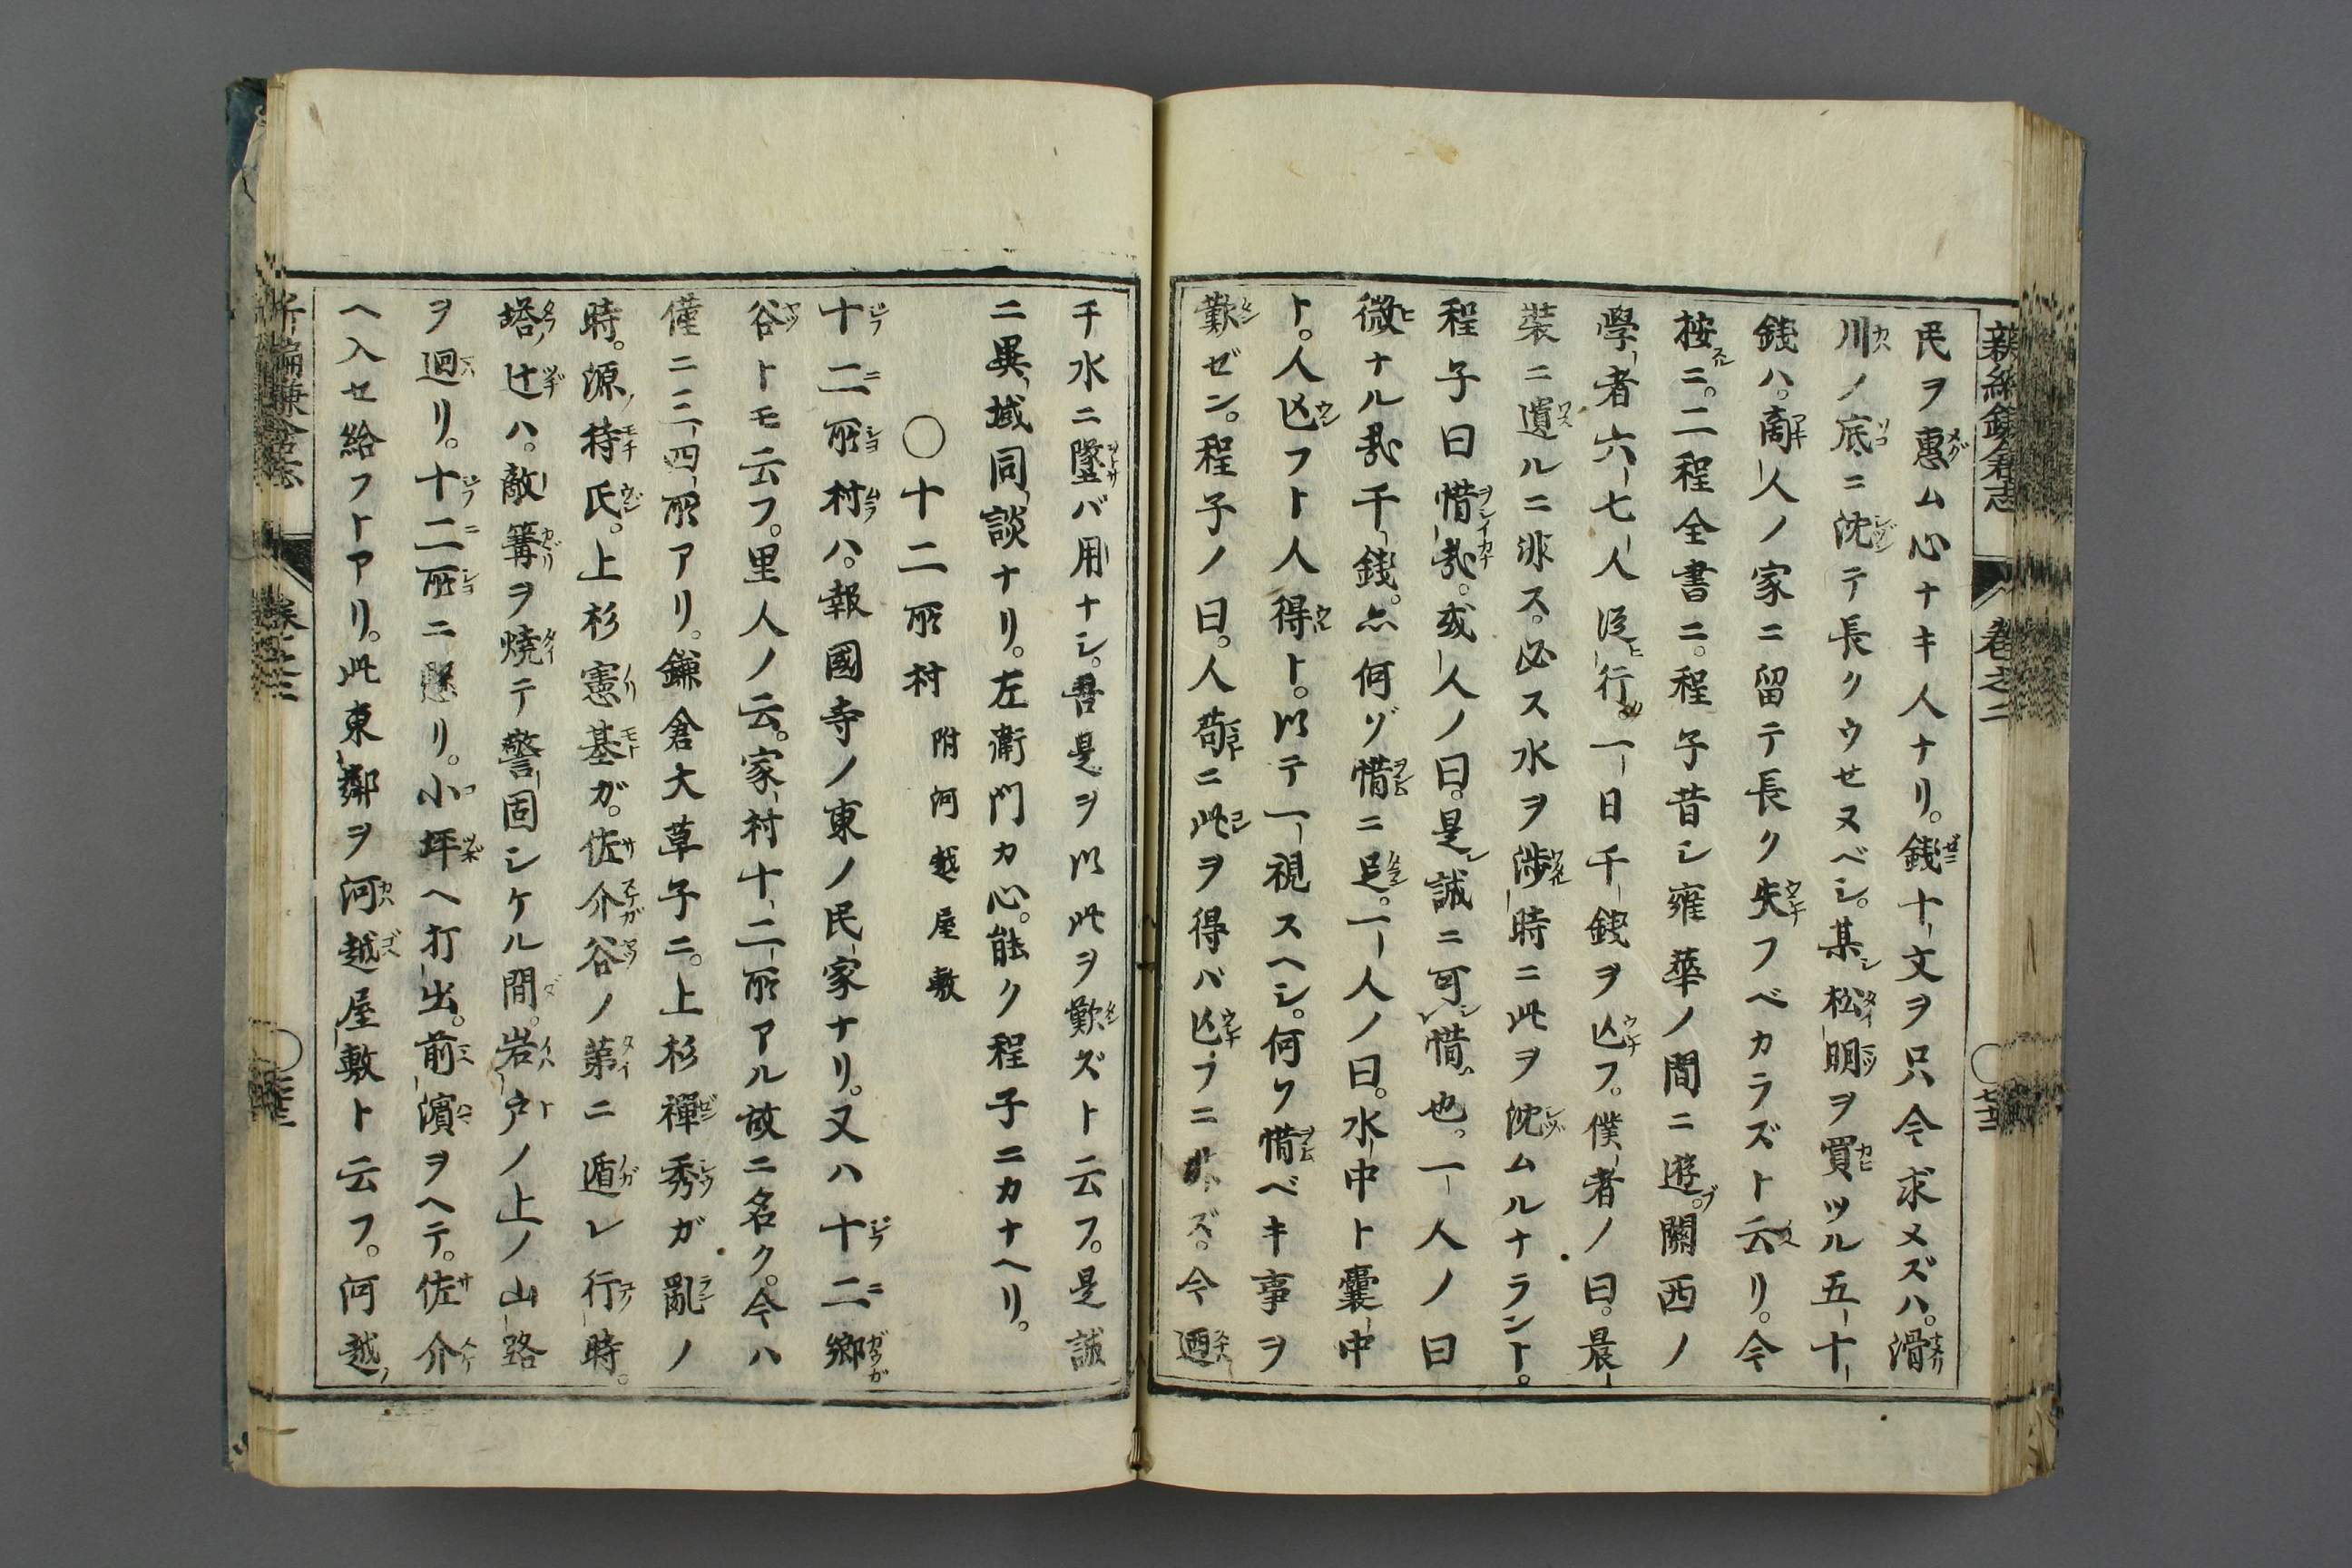 新編鎌倉志 卷之二 〇
民ヲ惠ム心ナキ人ナリ。錢十文ヲ只今求メズハ。滑
川ノ底ニ沈テ長クウセヌベシ。某松明ヲ買ツル五十
錢ハ。商人ノ家ニ留テ長ク失フベカラズト云リ。今
按ニ。二程全書ニ。程子昔シ雍華ノ間ニ遊ブ。關西ノ
學者六七人從行。一日千錢ヲ亾フ。僕者ノ曰。晨
裝ニ遺ルニ非ス。必ス水ヲ渉時ニ此ヲ沈ムルナラント。
程子曰惜哉。或人ノ曰。是誠ニ可惜也。一人ノ曰
微ナル哉千錢。亦何ゾ惜ニ足。一人ノ曰。水中ト囊中
ト。人亾フト人得ト。以テ一視スヘシ。何ソ惜ベキ事ヲ
歎ゼン。程子ノ曰。人苟ニ此ヲ得バ亾フニ非ズ。今迺
千水ニ墜バ用ナシ。吾是ヲ以此ヲ歎ズト云フ。是誠
ニ異域同談ナリ。左衛門カ心。能ク程子ニカナヘリ。
〇十二所村 附河越屋敷
十二所村ハ。報國寺ノ東ノ民家ナリ。又ハ十二郷
谷トモ云フ。里人ノ云。家村十二所アル故ニ名ク。今ハ
僅ニ三四所アリ。鎌倉大草子ニ。上杉禪秀ガ亂ノ
時。源持氏。上杉憲基ガ。佐介谷ノ第ニ遁レ行時。
塔辻ハ。敵篝ヲ燒テ警固シケル間。岩戸ノ上ノ山路
ヲ廻リ。十二所ニ懸リ。小坪ヘ打出。前濱ヲヘテ。佐介
ヘ入セ給フトアリ。此東鄰ヲ河越屋敷ト云フ。河越
新編鎌倉志 卷之二 〇